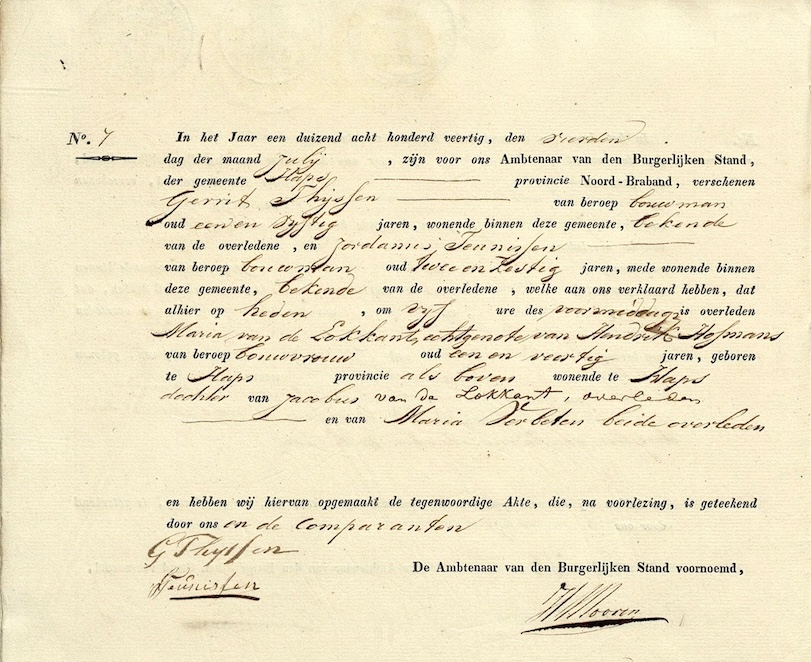 No. 7 In het Jaar een duizend acht honderd veertig, den vierden
dag der maand July , zijn voor ons Ambtenaar van den Burgerlijken Stand,
der gemeente Haps provincie Noord-Braband, verschenen
Gerrit Thijssen van beroep bouwman
oud een en vyftig jaren, wonende binnen deze gemeente, bekende
van de overledene , en Jordanus Teunissen
van beroep bouwman oud twee en zestig jaren, mede wonende binnen
deze gemeente, bekende van de overledene , welke aan ons verklaard hebben, dat
alhier op heden , om vyf ure des voormiddags is overleden
Maria van de Lokkant, echtgenote van Hendrik Hofmans
van beroep bouwvrouw oud een en veertig jaren, geboren
te Haps provincie als boven wonende te Haps
dochter van Jacobus van de Lokkant, overleden
en van Maria Verbeten beide overleden
en hebben wij hiervan opgemaakt de tegenwoordige Akte, die, na voorlezing, is geteekend
door ons en de Comparanten
G Thyssen
De Ambtenaar van den Burgerlijken Stand voornoemd,
Teunissen